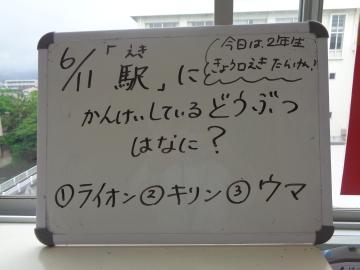 6/11「駅」に
えき
今日は、2年生
きょう口えきたんけん!
かんけいしているどうぶつ
はなに?
①ライオン ②キリン ③ウマ